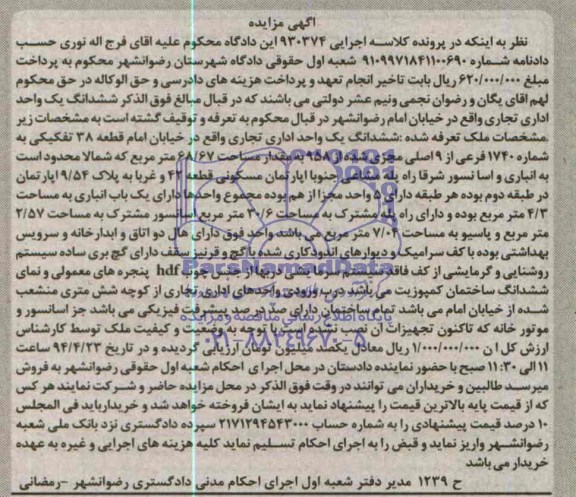 آگهی مزایده
نظر به اینکه در پرونده کلاسه اجرایی ۹۳۰۳۷۴ این دادگاه محکوم علیه اقای فرج اله نوری حسب
دادنامه شماره ۹۱۰۹۹۷۱۸۴۱۱۰۰۶۹۰ شعبه اول حقوقی دادگاه شهرستان رضوانشهر محکوم به پرداخت
مبلغ ۶۲۰/۰۰۰/۰۰۰ ریال بابت تاخیر انجام تعهد و پرداخت هزینه های دادرسی و حق الوکاله در حق محکوم
لهم اقای یگان و رضوان نجمی ونیم عشر دولتی می باشند که در قبال مبالغ فوق الذکر ششدانگ یک واحد
اداری تجاری واقع در خیابان امام رضوانشهر در قبال محکوم به تعرفه و توقیف گشته است به مشخصات زیر
.مشخصات ملک تعرفه شده :ششدانگ یک واحد اداری تجاری واقع در خیابان امام قطعه ۳۸ تفکیکی به
شماره ۱۷۴۰ فرعی از ۹ اصلی مجزی شده از ۹۵۸ به مقدار مساحت ۶۸/۶۷ متر مربع که شمالا محدود است
به انباری و اسا نسور شرقا راه پله مشاعی جنوبا اپارتمان مسکونی قطعه ۴۲ و غربا به پلاک ۹/۵۴ اپارتمان
در طبقه دوم بوده هر طبقه دارای ۵ واحد مجزا از هم بوده مجموع واحدها دارای یک باب انباری به مساحت
۴/۳ متر مربع بوده و دارای راه پله مشترک به مساحت ۳۰/۶ متر مربع اسانسور مشترک به مساحت ۲/۵۷
متر مربع و پاسیو به مساحت ۷/۰۴ متر مربع می باشد واحد فوق دارای هال دو اتاق و ابدارخانه و سرویس
بهداشتی بوده با کف سرامیک و دیوارهای اندودکاری شده با گچ و قرنیز سقف دارای گچ بری ساده سیستم
روشنایی و گرمایشی از کف فاقد سیستم سرمایشی دربها از جنس چوب hdf پنجره های معمولی و نمای
ششدانگ ساختمان کمپوزیت می باشد درب ورودی واحدهای اداری تجاری از کوچه شش متری منشعب
شده از خیابان امام می باشد تمام ساختمان دارای صد درصد پیشرفت فیزیکی می باشد جز اسانسور و
موتور خانه که تاکنون تجهیزات آن نصب نشده است با توجه به وضعیت و کیفیت ملک توسط کارشناس
ارزش کل ا ن ۱/۰۰۰/۰۰۰/۰۰۰ ریال معادل یکصد میلیون تومان ارزیابی گردیده و در تاریخ ۹۴/۴/۲۳ ساعت
۱۱ الی ۱۱:۳۰ صبح با حضور نماینده دادستان در محل اجرا ی احکام شعبه اول حقوقی رضوانشهر به فروش
میرسد طالبین و خریداران می توانند در وقت فوق الذکر در محل مزایده حاضر و شرکت نمایند هر کس
که از قیمت پایه بالاترین قیمت را پیشنهاد نماید به ایشان فروخته خواهد شد و خریدارباید فی المجلس
۱۰ درصد قیمت پیشنهادی را به شماره حساب ۲۱۷۱۲۹۴۵۴۳۰۰۰ سپرده دادگستری نزد بانک ملی شعبه
رضوانشهر واریز نماید و قبض را به اجرای احکام تسلیم نماید کلیه هزینه های اجرایی و غیره به عهده
خریدار می باشد
ح ۱۲۳۹ مدیر دفتر شعبه اول اجرای احکام مدنی دادگستری رضوانشهر –رمضانی
ParsNamadData
پایگاه اطلاع رسانی مناقصه و مزایده
۰۲۱-۸۸۳۴۹۶۷۰-۵